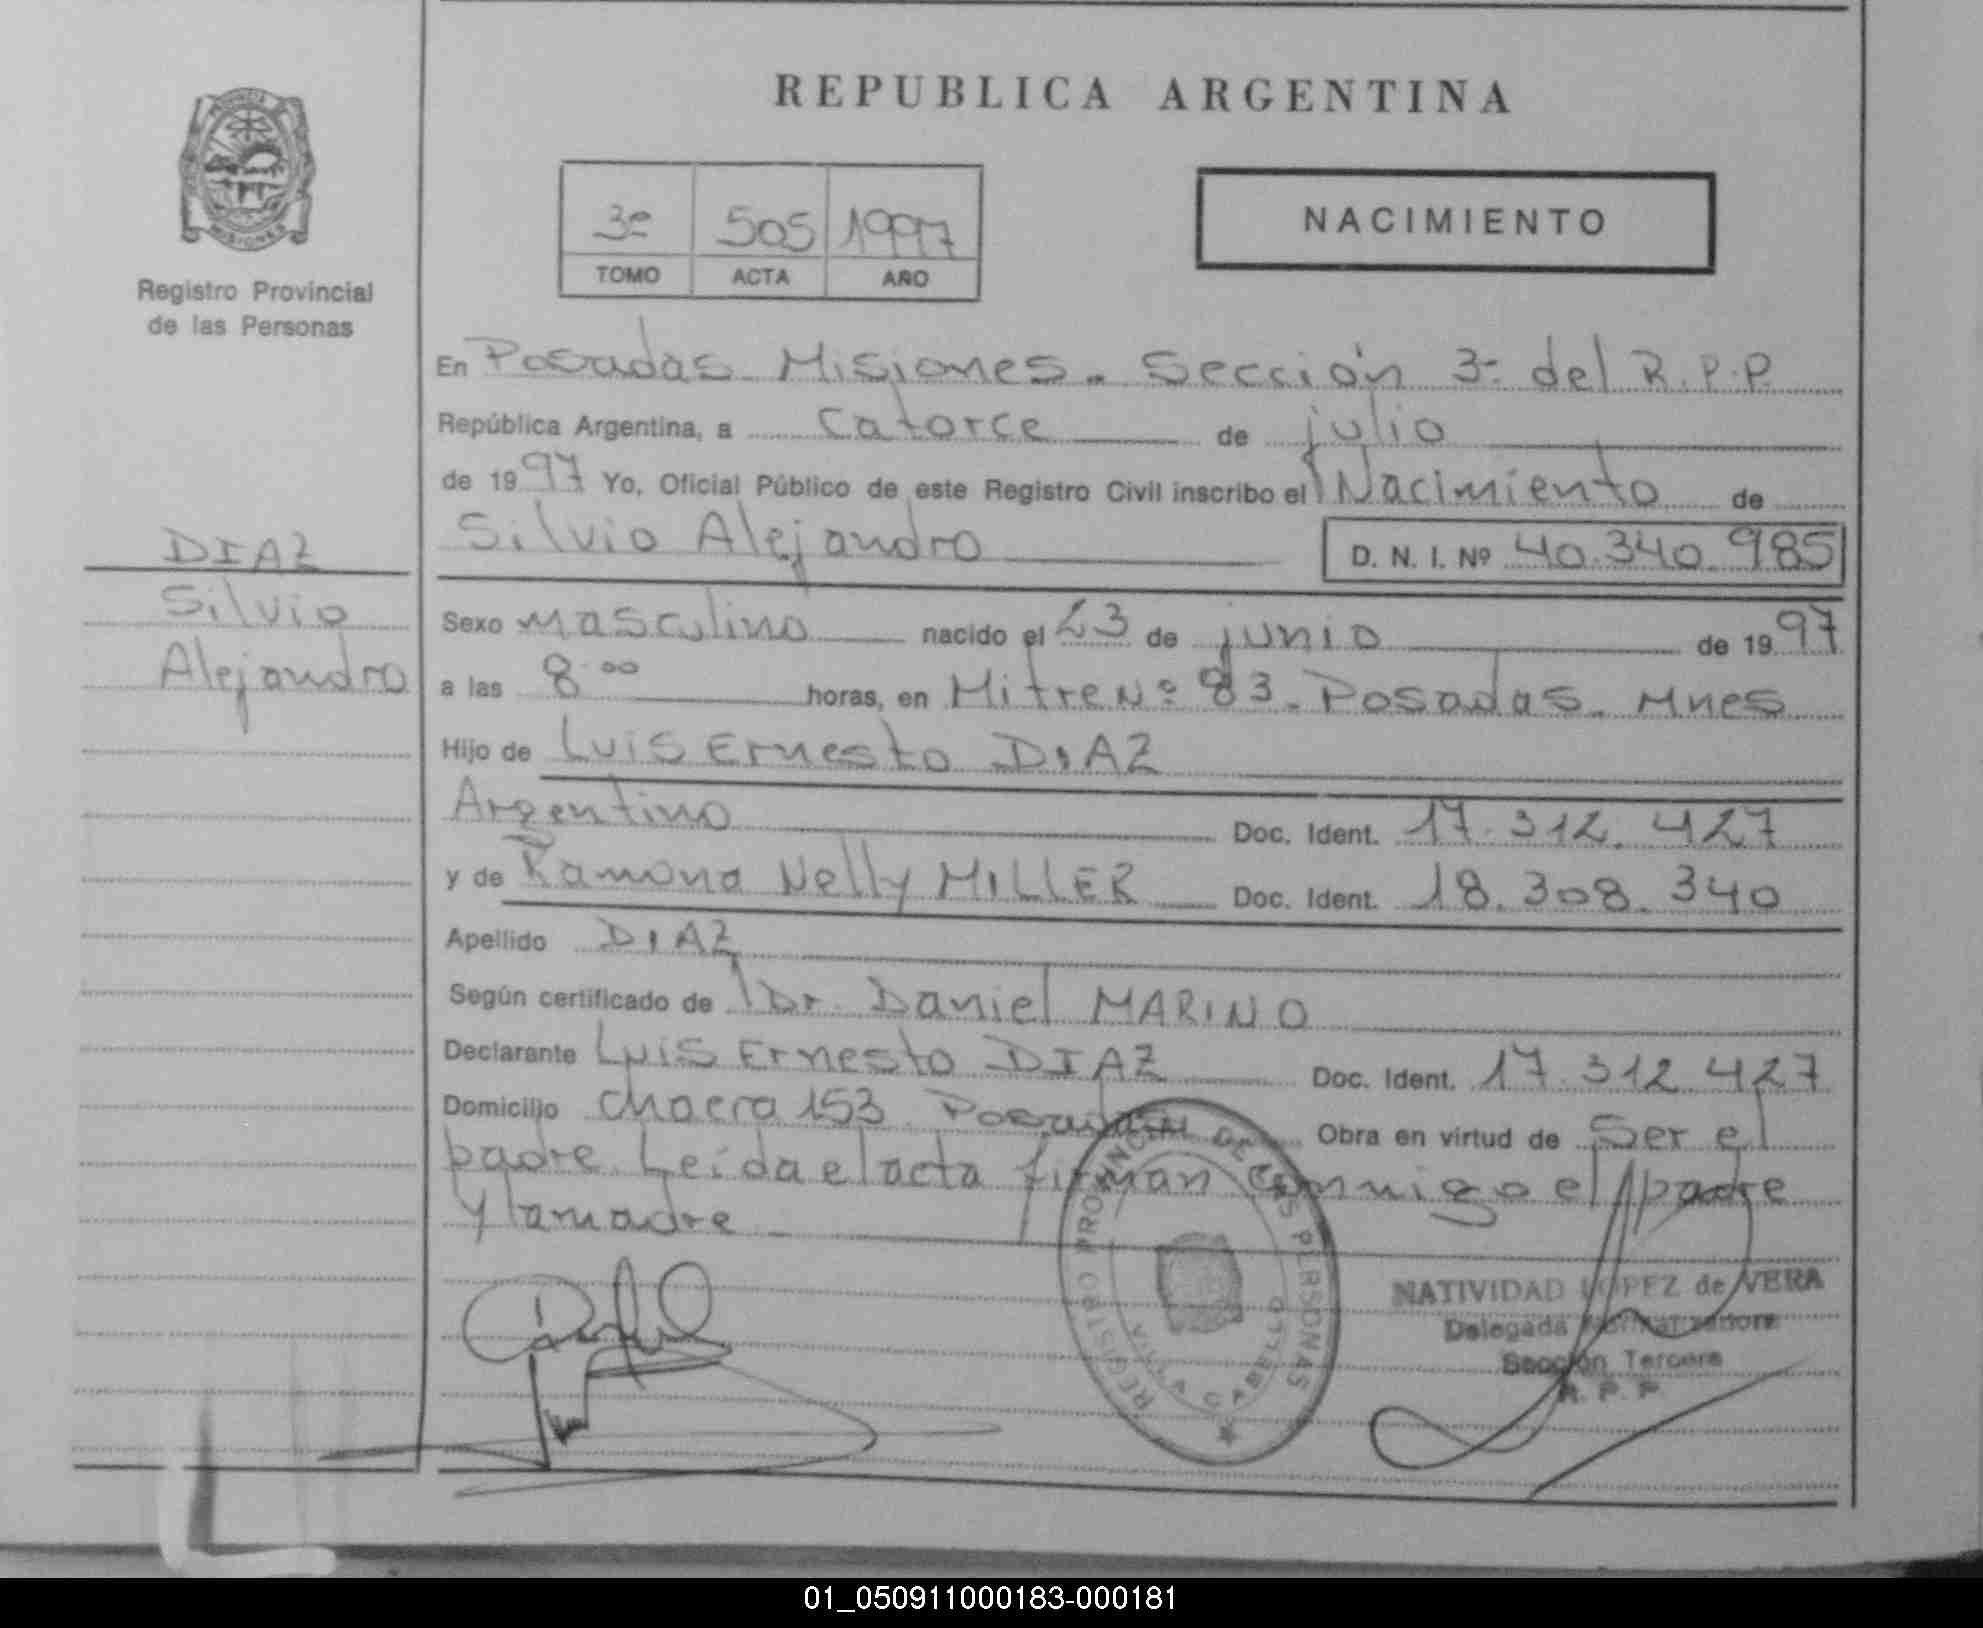 REPUBLICA ARGENTINA
MISIONES
Registro Provincial
de las Personas
3º 505 1997
TOMO ACTA AÑO
NACIMIENTO
En Posadas Misiones. Sección 3ª del R.P.P.
República Argentina, a catorce de julio
de 1997 Yo, Oficial Público de este Registro Civil inscribo el Nacimiento de
Silvio Alejandro D. N. I. Nº 40.340.985
DIAZ
Silvio
Alejandro
Sexo masculino nacido el 23 de junio de 1997
a las 8.00 horas, en Mitre Nº 83. Posadas. Mnes
Hijo de Luis Ernesto DIAZ
Argentino Doc. Ident. 17.312.427
y de Ramona Nelly MILLER Doc. Ident. 18.308.340
Apellido DIAZ
Según certificado de Dr. Daniel MARINO
Declarante Luis Ernesto DIAZ Doc. Ident. 17.312.427
Domicilio chacra 153 Posadas Obra en virtud de Ser el
padre. Leída el acta firman conmigo el padre
y la madre
REGISTRO PROVINCIAL DE LAS PERSONAS
VILLA CABELLO
NATIVIDAD LOPEZ de VERA
Delegada Normalizadora
Sección Tercera
R. P. P.
01_050911000183-000181